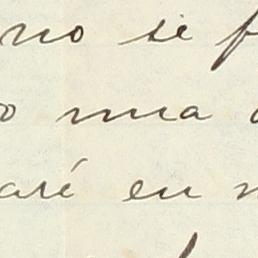 no se f
o una
aré en n